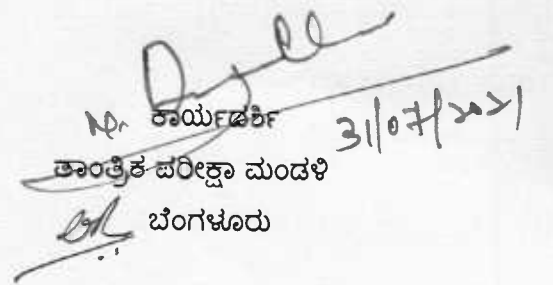 ಕಾರ್ಯದರ್ಶಿ
31/07/2021
ತಾಂತ್ರಿಕ ಪರೀಕ್ಷಾ ಮಂಡಳಿ
ಬೆಂಗಳೂರು